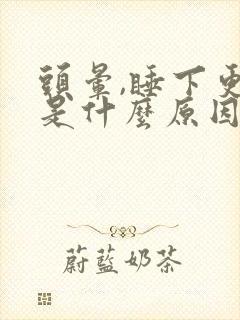 頭暈,睡下更
是什麼原因
蔚藍奶茶